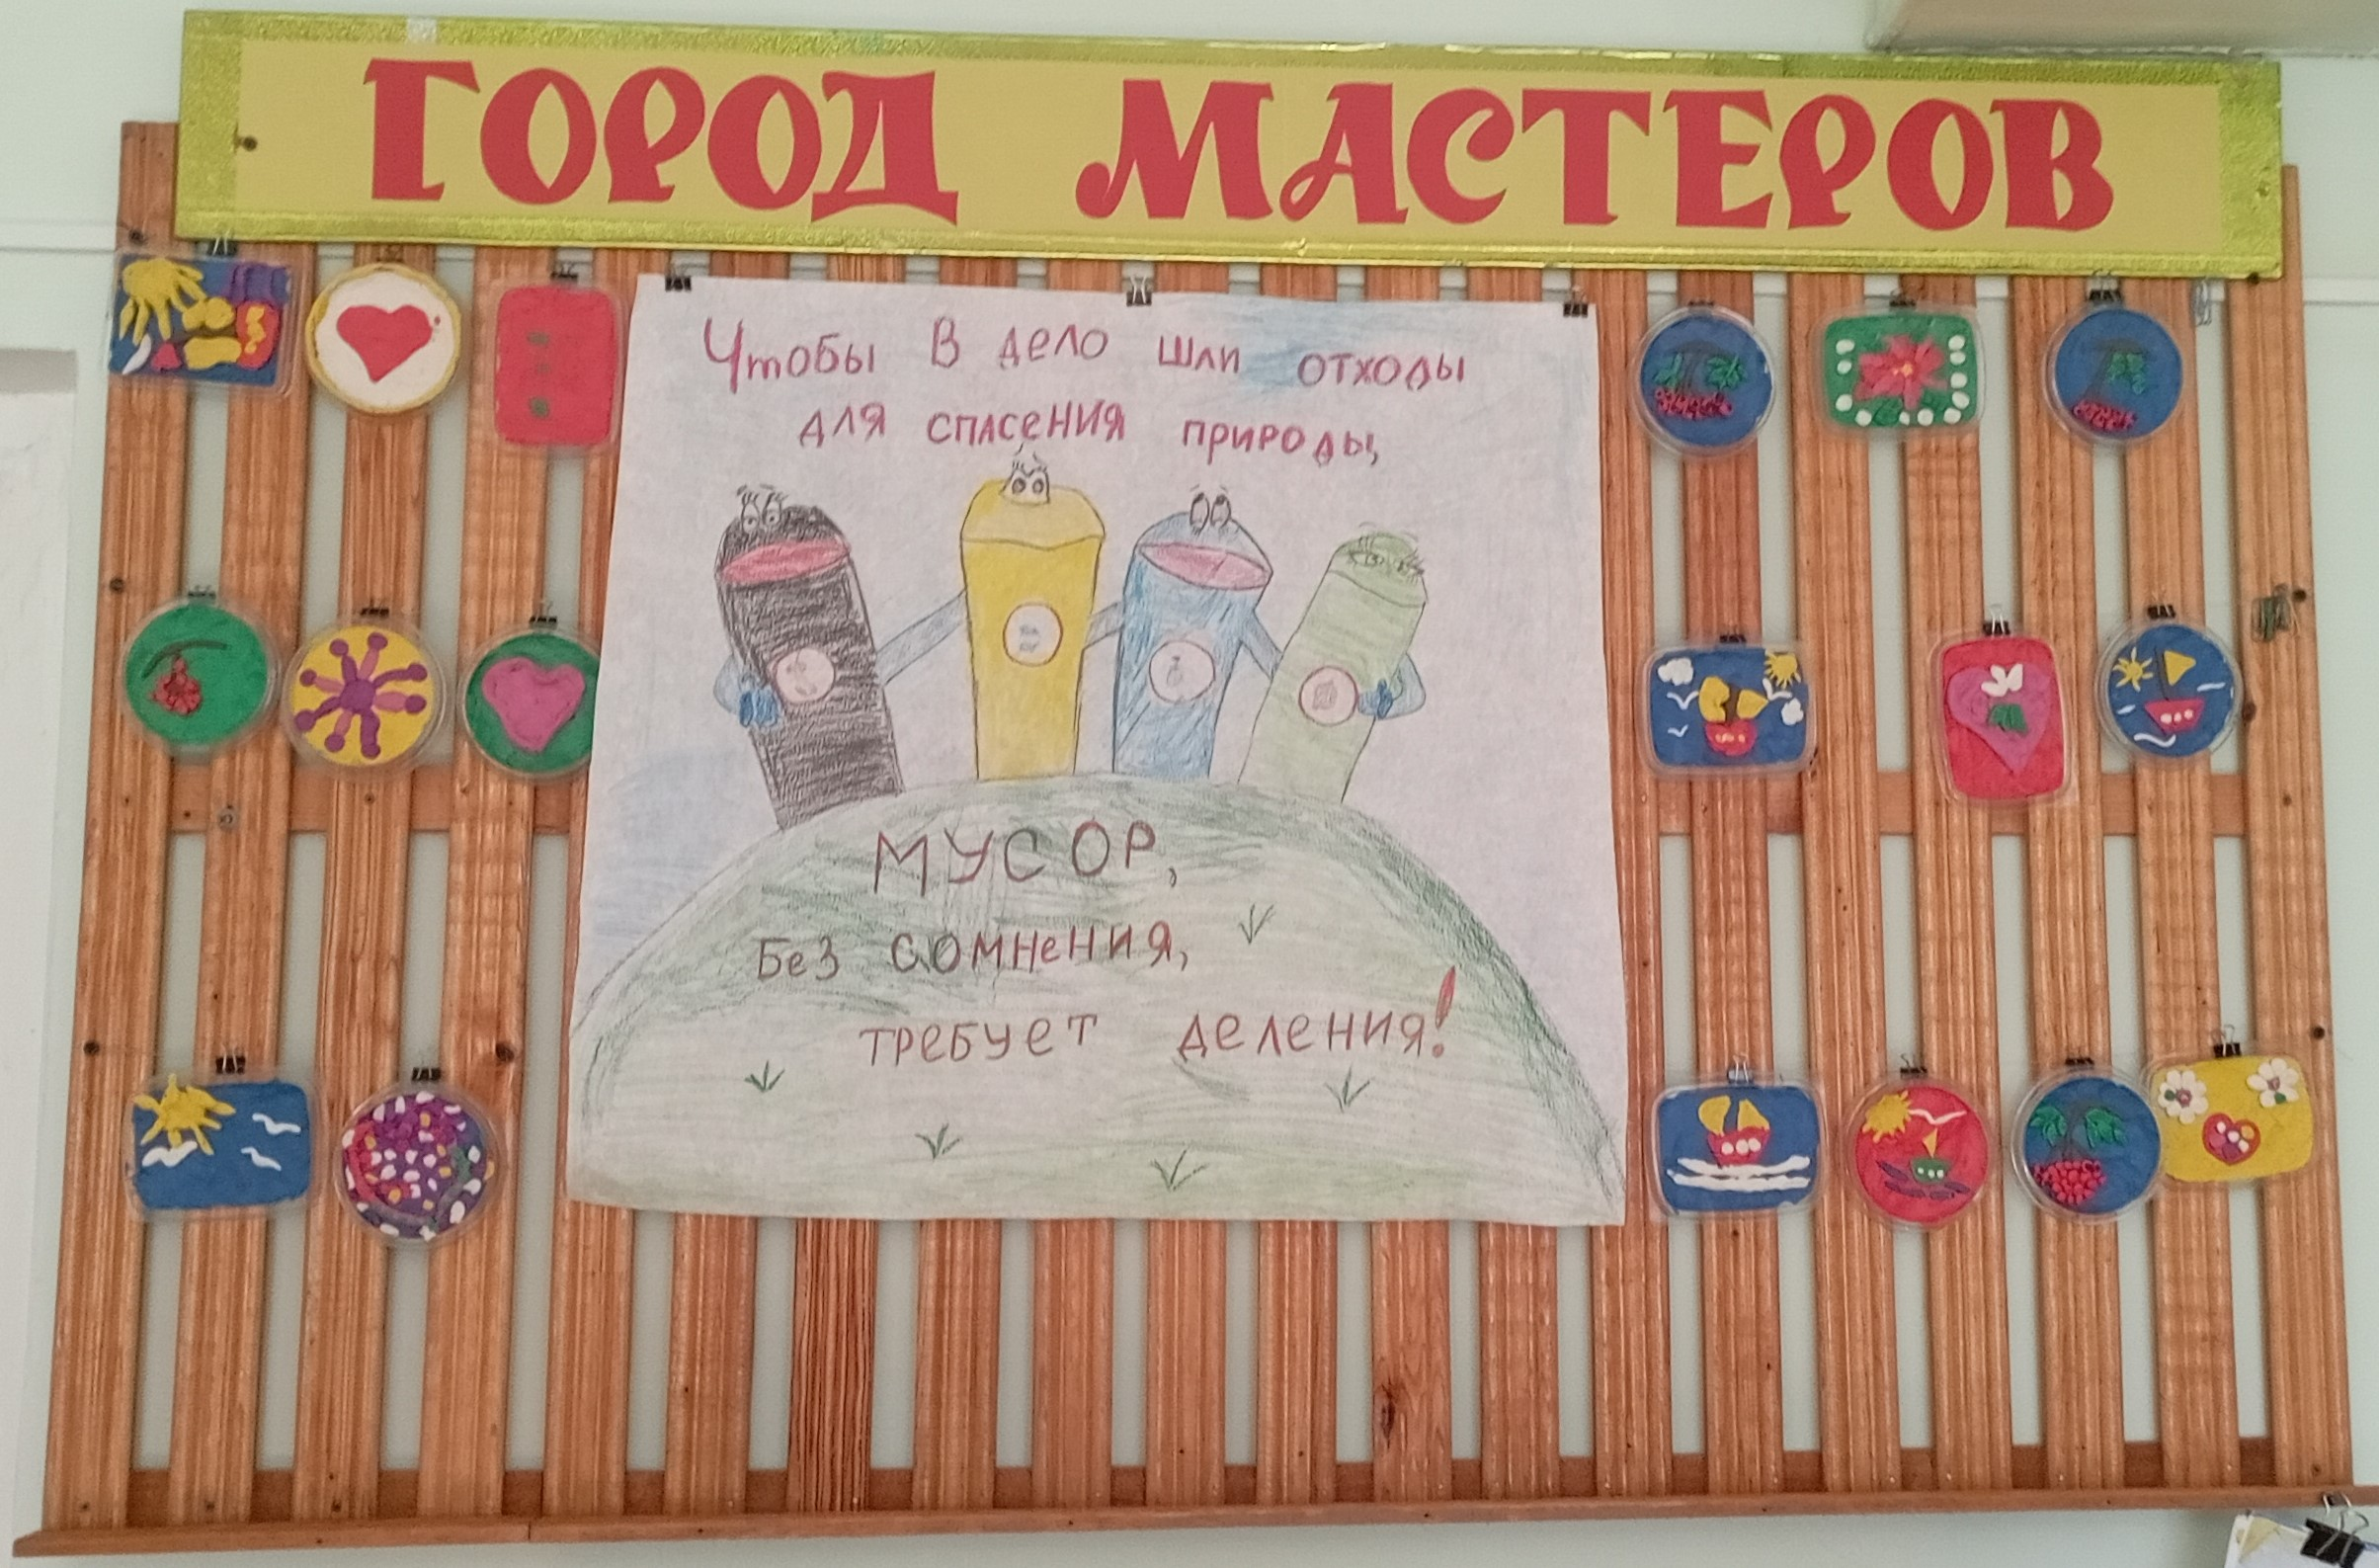 ГОРОД МАСТЕРОВ
Чтобы В дело шли отходы
для спасения природы,
МУСОР,
Без сомнения,
требует деления!